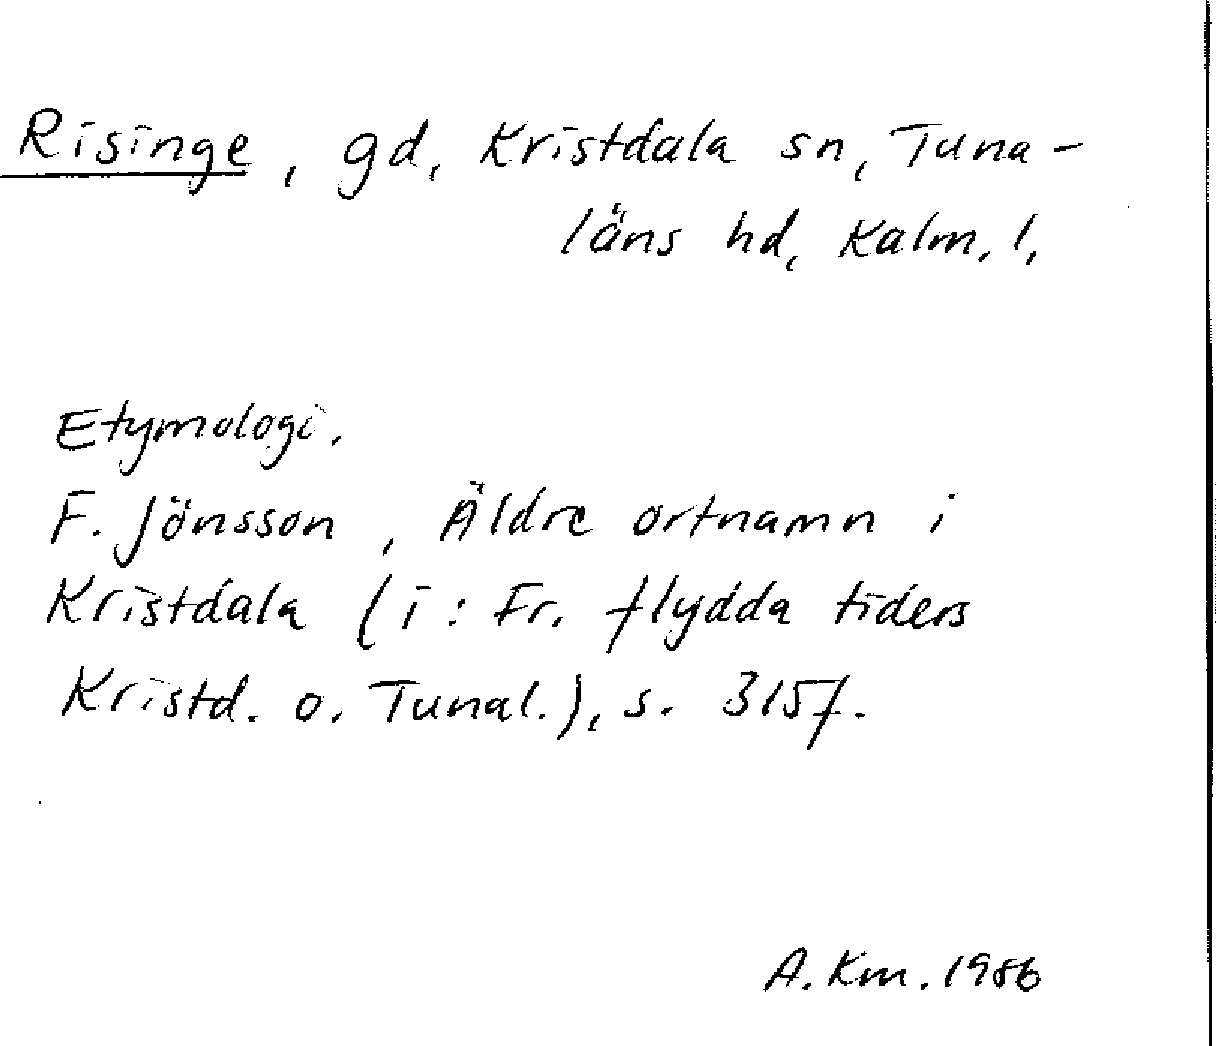 Risinge, gd, Kristdala sn, Tuna-
läns hd, Kalm. l.
Etymologi.
F. Jönsson, Äldre ortnamn i
Kristdala (i: Fr. flydda tiders
Kristd. o. Tunal.), s. 315f.
A. Km. 1986